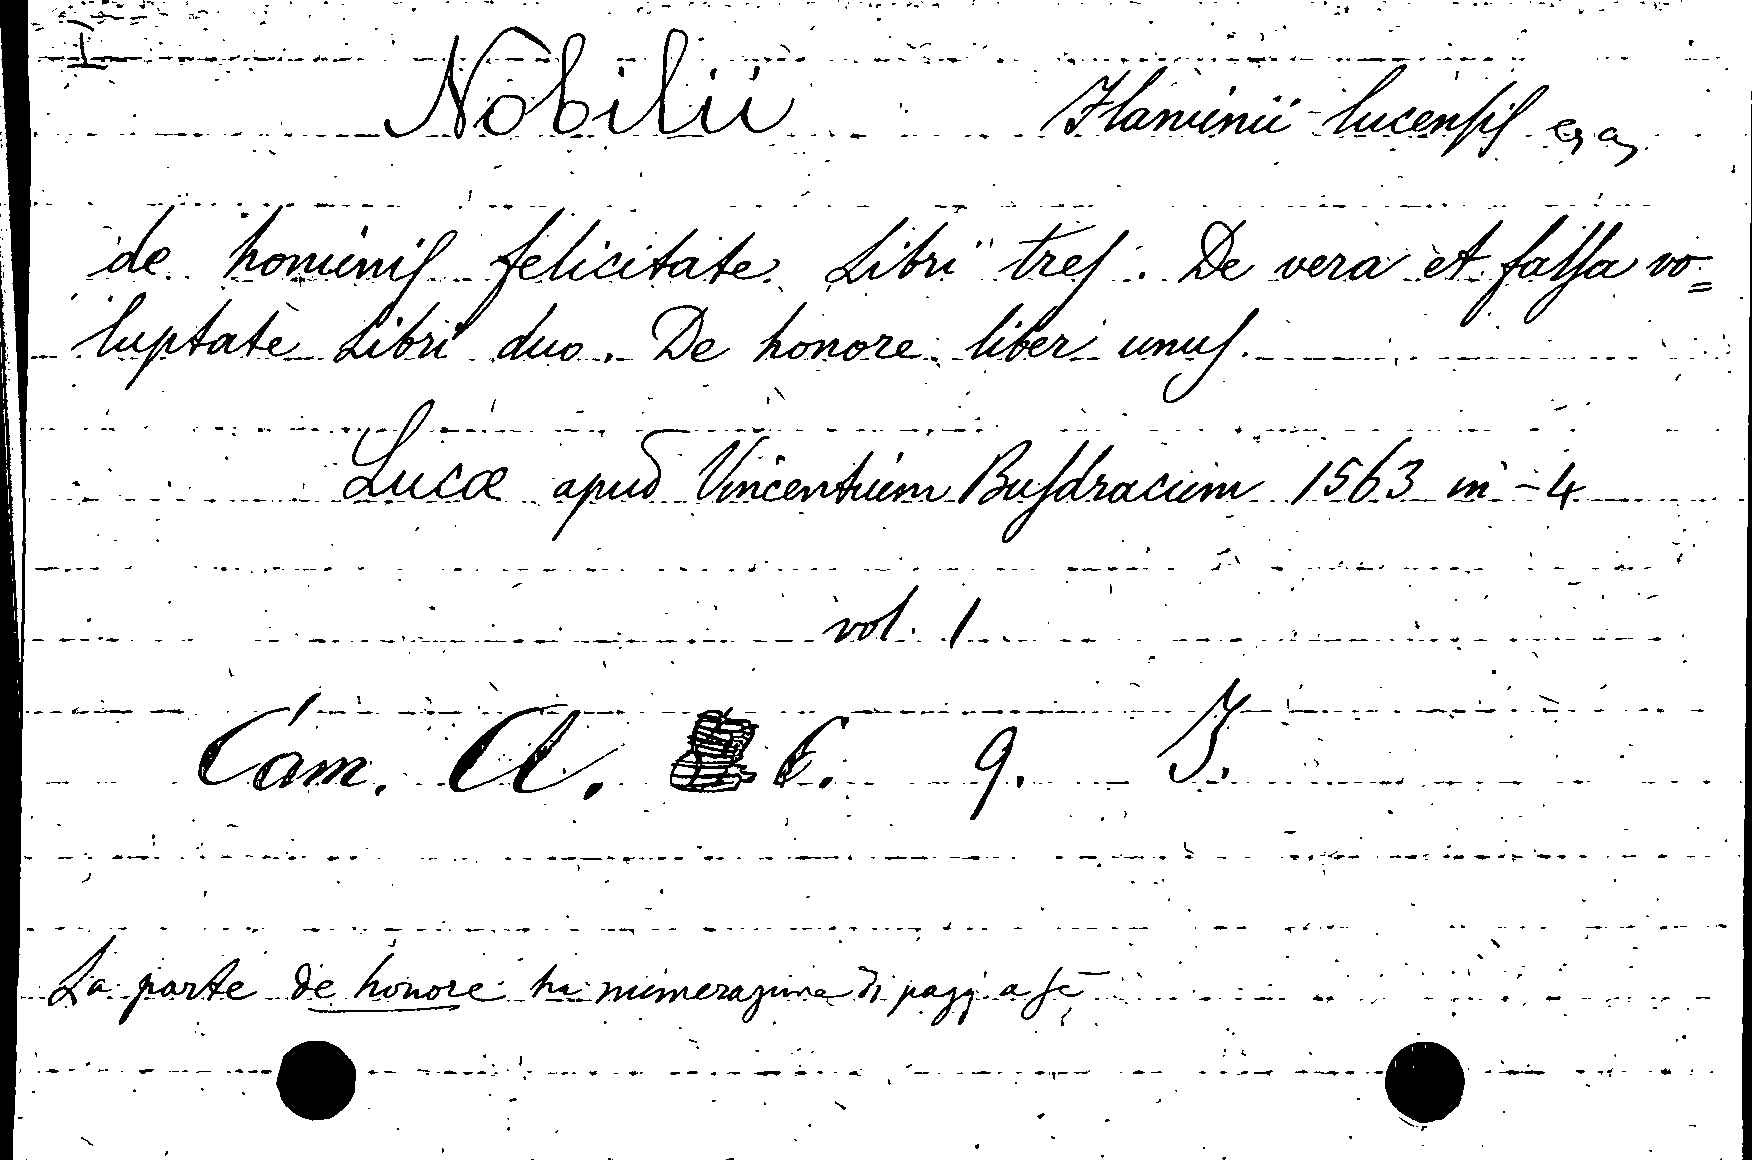 I
Nobilii Flaminii lucensis
de hominis felicitate Libri tres. De vera et falsa vo=
luptate Libri duo. De honore liber unus.
Lucæ apud Vincentium Busdracum 1563 in-4
vol. 1
Cam. A. C. 9. I.
La parte de honore ha numerazione di pagg a se